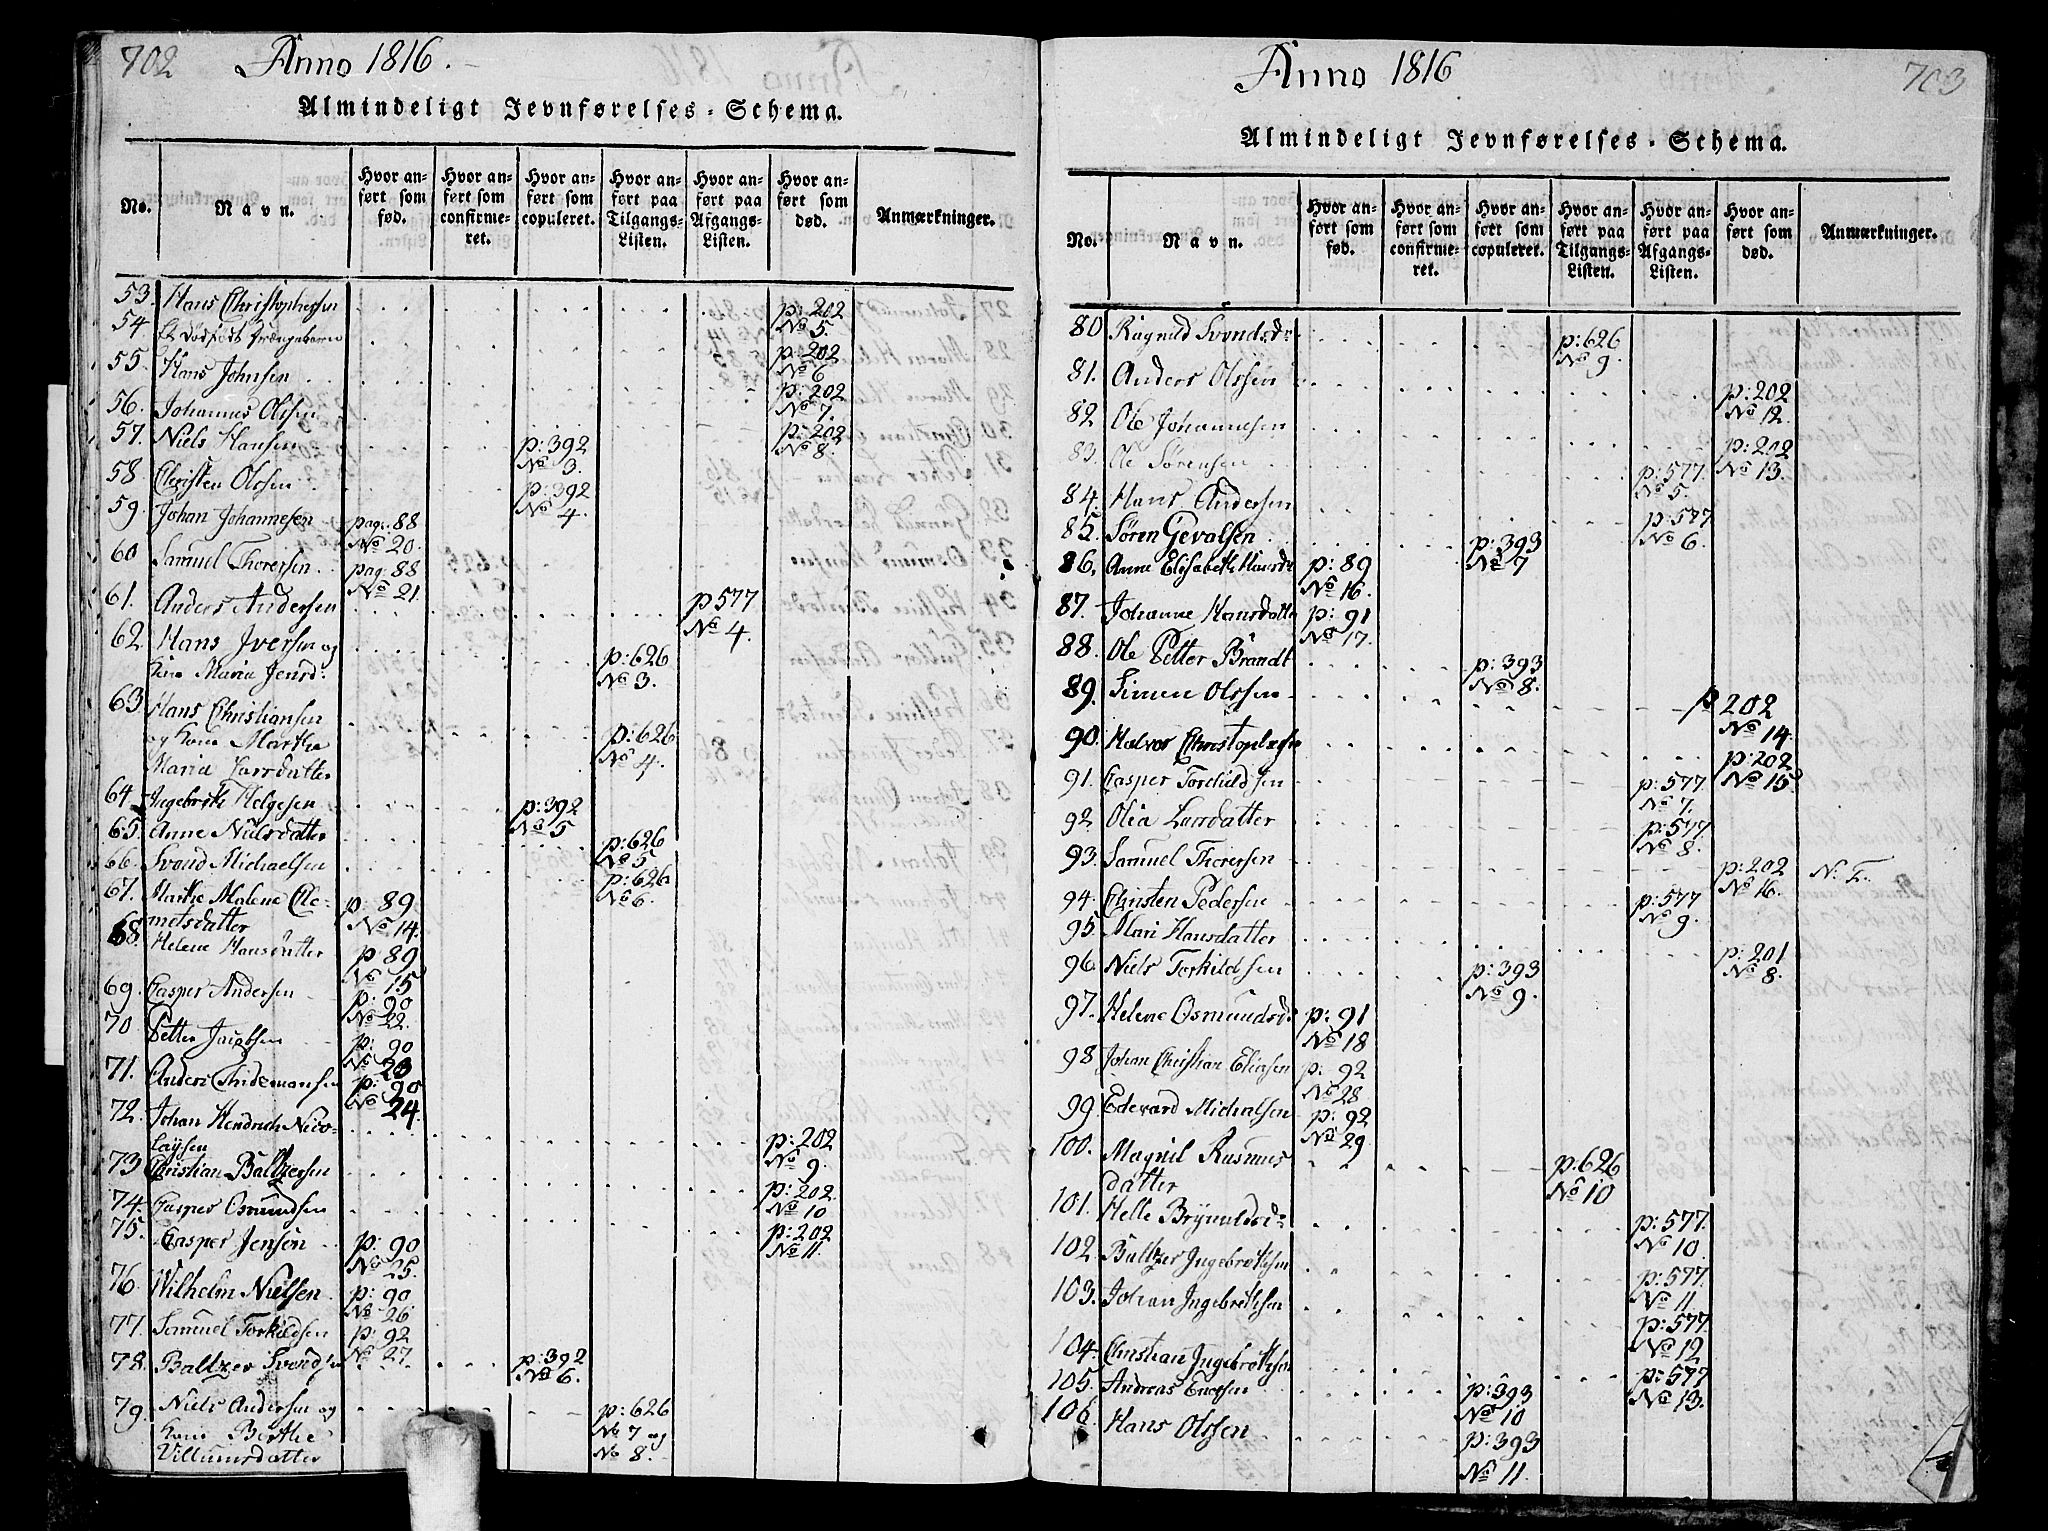 702 Anno 1816.
Almindeligt Jevnførelses-Schema.
No. Navn. Hvor anført som fød. Hvor anført som confirmeret. Hvor anført som copuleret. Hvor anført paa Tilgangs-Listen. Hvor anført paa Afgangs-Listen. Hvor anført som død. Anmærkninger.
53. Hans Christophersen p: 202 No 5.
54 Et dødfødt Drængebarn p: 202 No 6
55. Hans Johnsen p: 202 No 7.
56. Johannes Olssen p: 202 No 8.
57. Niels Hansen p: 392 No 3.
58. Christen Olssen p: 392 No 4.
59. Johan Johannesen pag: 88 No 20.
60 Samuel Thorersen pag: 88 No 21.
61. Anders Andersen p 577 No 4.
62. Hans Iversen og
Kone Maria Jensd: p: 626 No 3.
63 Hans Christiansen
og Kone Marthe p: 626 No 4.
Maria Larsdatter
64 Ingebreth Helgesen p: 392 No 5
65. Anne Nielsdatter p: 626 No 5
66. Svend Michaelsen p: 626 No 6.
67. Marthe Malene Cle- p: 89 No 14.
metsdatter
68. Helene Hansdatter p: 89 No 15
69. Casper Andersen p: 90 No 22.
70 Petter Jacobsen p: 90 No 23
71. Anders Andersen p: 90 No 24.
72. Johan Hendrich Nico-
laysen p: 202 No 9.
73 Christian Baltzersen p: 202. No 10
74. Casper Osmundsen p: 202 No 11.
75. Casper Jensen p: 90 No 25.
76. Wilhelm Nielsen p: 90 No 26
77. Samuel Torkildsen p: 92 No 27.
78. Baltzer Svendsen p: 392 No 6.
79 Niels Andersen og p: 626
Kone Birthe No 7 og
Villumsdatter No 8.
Anno 1816 703
Almindeligt Jevnførelses-Schema.
No. Navn. Hvor anført som fød. Hvor anført som confirmeret. Hvor anført som copuleret. Hvor anført paa Tilgangs-Listen. Hvor anført paa Afgangs-Listen. Hvor anført som død. Anmærkninger.
80 Ragnild Svendsdr: p: 626 No 9.
81. Anders Olssen p: 202 No 12.
82 Ole Johannesen p: 202 No 13.
83. Ole Sørensen p: 577 No 5.
84. Hans Andersen p: 577 No 6.
85. Søren Gevalsen p: 393 No 7
86. Anne Elisabeth Hansdr p: 89 No 16.
87. Johanne Hansdatter p: 91 No 17.
88. Ole Petter Brandt p: 393 No 8.
89. Simen Olssen p 202 No 14.
90. Halvor Christophersen p: 202 No 15.
91. Casper Torchildsen p: 577 No 7.
92. Olia Larsdatter p: 577 No 8.
93. Samuel Thorersen p: 202 No 16. N. T.
94. Christen Pedersen p: 577 No 9.
95. Mari Hansdatter p: 201 No 8.
96. Niels Torkildsen p: 393 No 9.
97. Helene Osmundsd: p: 91 No 18
98 Johan Christian Eliasen p: 92 No 28
99 Edevard Michalsen p: 92 No 29.
100. Magnil Rasmus
datter p: 626 No 10
101. Helle Brynildsd: p: 577. No 10
102. Baltzer Ingebrethsen p: 577. No 11
103. Johan Ingebrethsen p: 577. No 12
104. Christian Ingebrethsen p: 577 No 13.
105. Andreas p: 393 No 10
106. Hans Olssen p: 393 No 11.